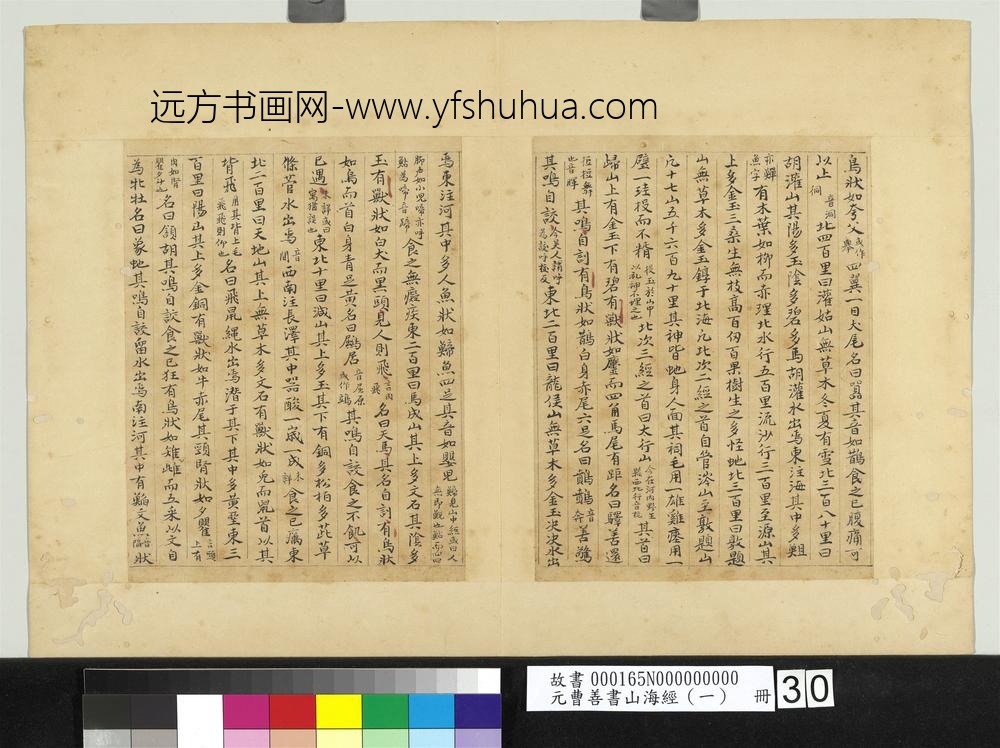 远方书画网-www.yfshuhua.com
鳥狀如夸父或作舉四翼一目犬尾名曰囂其音如鵲食之已腹痛可
以止衕音洞北四百里曰灌姑山無草木冬夏有雪北三百八十里曰
胡灌山其陽多玉陰多碧多馬胡灌水出焉東注海其中多䱇
亦鱓魚字有木葉如柳而赤理北水行五百里流沙行三百里至源山其
上多金玉三桑生無枝高百仞百果樹生之多怪虵北三百里曰敦題山
山無草木多金玉錞于北海凡北次二經之首自管涔山至敦題山
凡十七山五千六百九十里其神皆虵身人面其祠毛用一雄雞瘞用一
璧一珪投而不糈投玉於山中以礼神不埋之也北次三經之首曰大行山今在河内野王縣西北行音杭其首曰
歸山上有金玉下有碧有獸狀如麢而四角馬尾有距名曰驒善還
其鳴自訆有鳥狀如鵲白身赤尾六足名曰鷾鷾音奔善驚
其鳴自詨今吳人謂呼為詨呼校反東北二百里曰龍侯山無草木多金玉決決水出
焉東注河其中多人魚狀如鯑魚四足其音如嬰兒
脚聲如小兒啼亦呼鮎為啼音蹄食之無癡疾東二百里曰馬成山其上多文石其陰多
玉有獸狀如白犬而黑頭見人則飛名曰天馬其名自訆有鳥狀
如烏而首白身青足黃名曰鶌居其鳴自詨食之不飢可以
已遇未詳或曰寓猶誤也東北十里曰減山其上多玉其下有銅多松柏多茈草
條菅水出焉音間西南注長澤其中器酸一歲一成未詳食之已癘東
北二百里曰天地山其上無草木多文石有獸狀如兔而鼠首以其
背飛用其背上毛飛飛則仰也名曰飛鼠繩水出焉潜于其下其中多黃堊東三
百里曰陽山其上多金銅有獸狀如牛赤尾其頸腎狀如夕瞿言頸上有
肉如腎名曰領胡其鳴自詨食之已狂有鳥狀如雉雌而五采以文自
為牝牡名曰象虵其鳴自詨留水出焉南注河其中有鮨文魚狀
故書 000165N000000000
元曹善書山海經（一） 冊 30